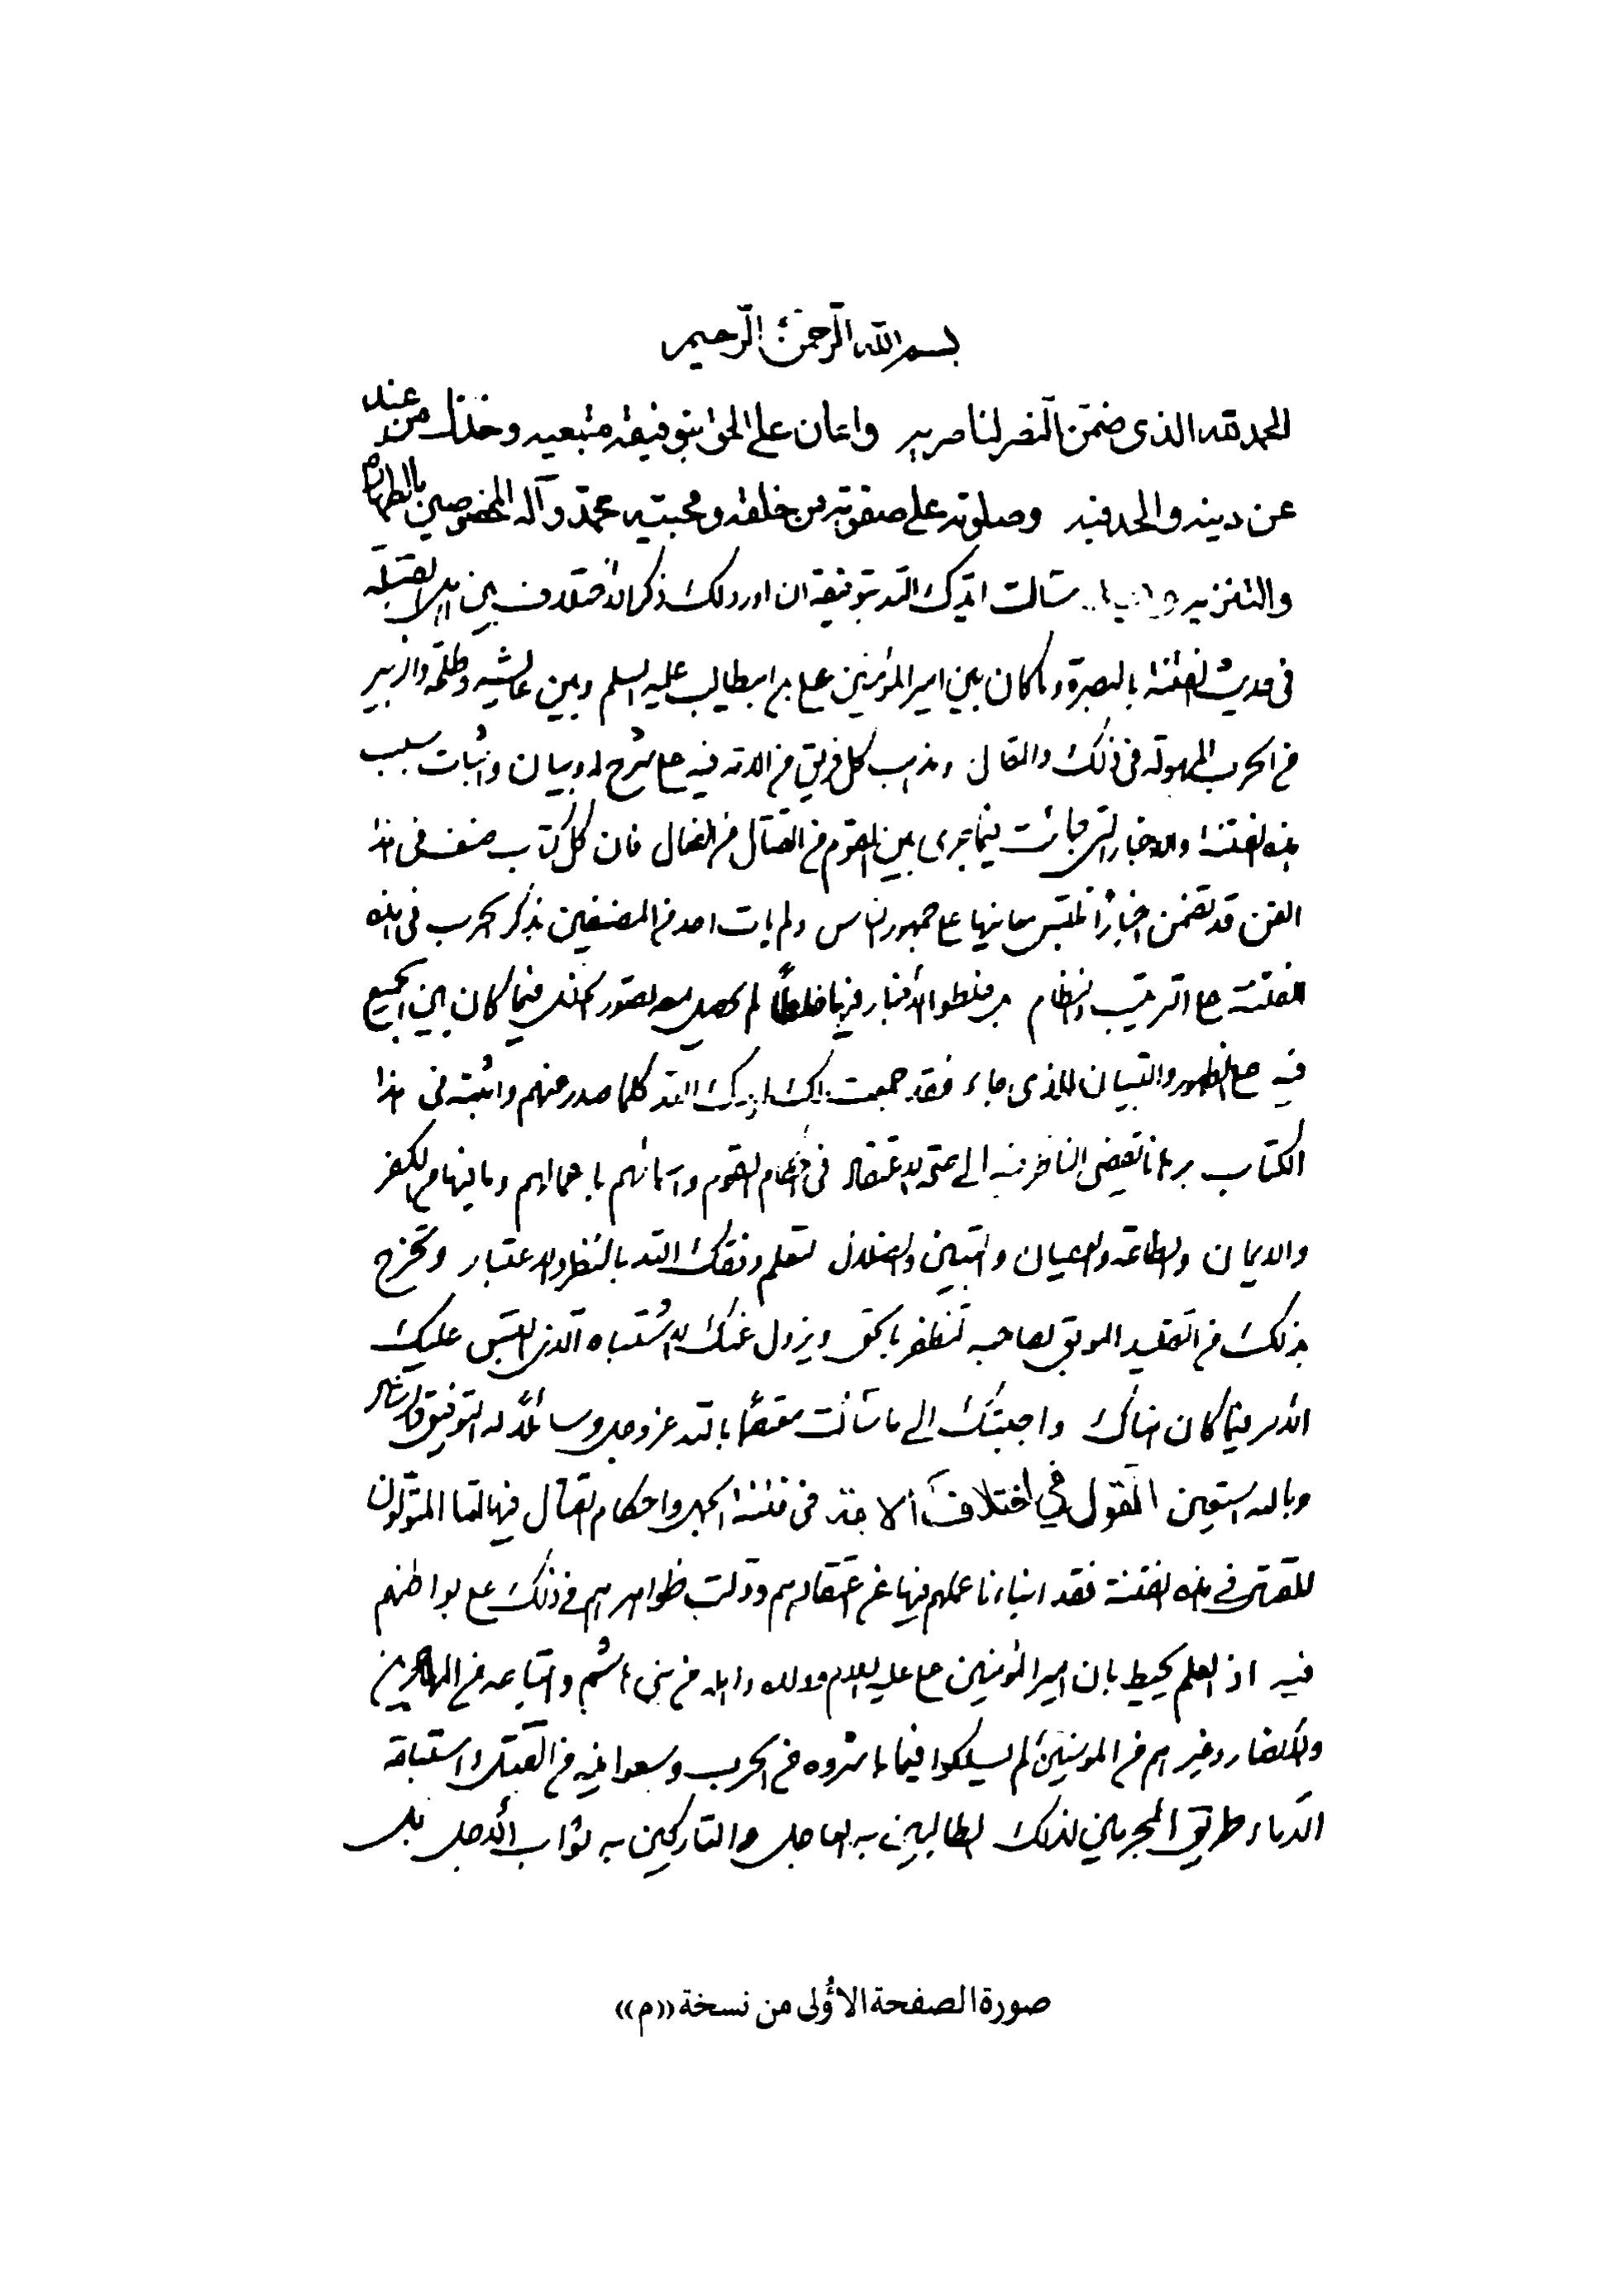 بسم الله الرحمن الرحيم
الحمد لله الذى ضمن النصر لناصريه واعان على الحق بتوفيقه متبعيه وخذل من عند
عن دينه والحد فيه وصلوته على صفوته من خلقه ومجتبيه محمد وآله المخصوصين بالطهارة
والتنزيه سألت ايدك الله بتوفيقه ان اورد لك ذكر الاختلاف بين اهل القبلة
فى حديث الفتنة بالبصرة وما كان بين امير المؤمنين على بن ابيطالب عليه السلم وبين عايشه وطلحة والزبير
من الحرب المهولة فى ذلك والقتال ومذهب كل فريق من الامة فيه على شرح له وبيان واثبات سبب
هذه الفتنة والاخبار التى جائت فيما جرى بين القوم من القتال من الفعال فان كل كتاب صنف فى هذا
الفن قد تضمن اخبارا تلتبس معانيها على جمهور الناس ولم يات احد من المصنفين بذكر الحرب فى هذه
الفتنة على الترتيب والنظام بل خلطوا الأخبار فيها خلطاً لم يحصل معه تصور الخلل فيما كان بين الجميع
فيه على الظهور والتبيان للذى جاء فقد جمعت لك ايدك الله كلما صدر عنهم واثبته فى هذا
الكتاب برهانا يفضى الناظر فيه الى صحة الاعتقاد فى احكام القوم واسمائهم باعمالهم وما فيها من الكفر
والايمان والطاعة والعصيان والتبيين والضلال لتعلم وفقك الله بالنظر والاعتبار وتخرج
بذلك من التقليد الموبق لصاحبه لتظفر بالحق ويزول عنك الاشتباه الذى التبس عليك
الأمر فيما كان هناك واجبتك الى ما سألت معتصماً بالله عز وجل وسائلاً له التوفيق والرشاد
وبالله استعين القول في اختلاف الامة فى فتنة الجمل واحكام القتال فيها اما المتولون
للقتال فى هذه الفتنة فقد انباءنا عملهم فيها عن اعتقادهم ودلت ظواهرهم فى ذلك على بواطنهم
فيه اذ العلم يحيط بان امير المؤمنين على عليه السلام وولده واهله من بنى هاشم واتباعه من المهاجرين
والأنصار وغيرهم من المؤمنين لم يسلكوا فيما باشروه من الحرب وسعوا فيه من القتل واستباحة
الدماء طريق المجرمين لذلك الطالبين به العاجل والتاركين به ثواب الأجل بل
صورة الصفحة الأولى من نسخة ((م))